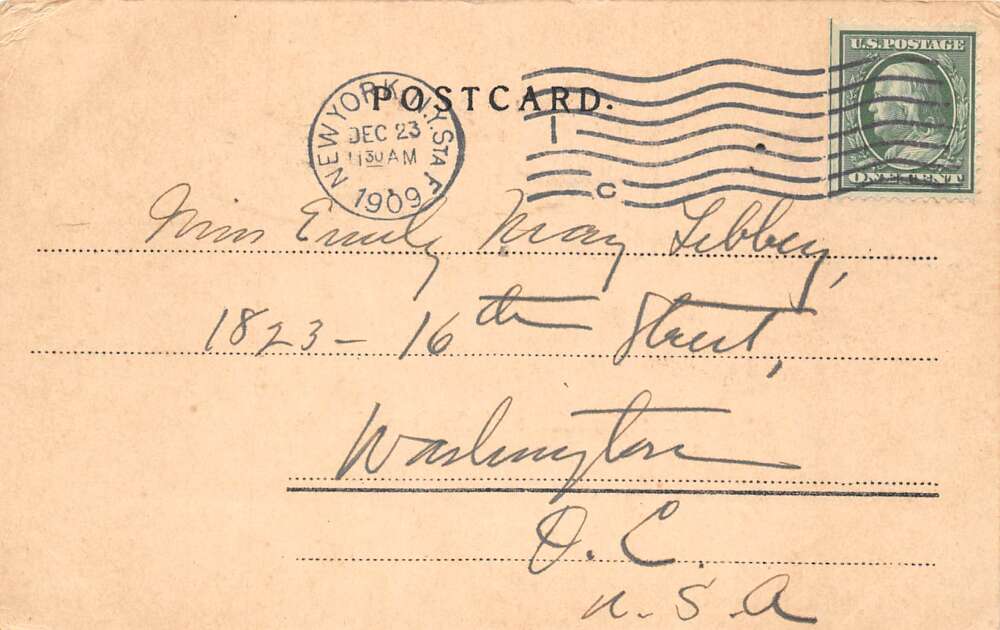 U.S. POSTAGE
POSTCARD.
NEW YORK, N.Y. STA F
DEC 23
11 30 AM
1909
1
C
ONE CENT
Miss Emily May Libbey,
1823 - 16th Street,
Washington
D. C.
U. S. A